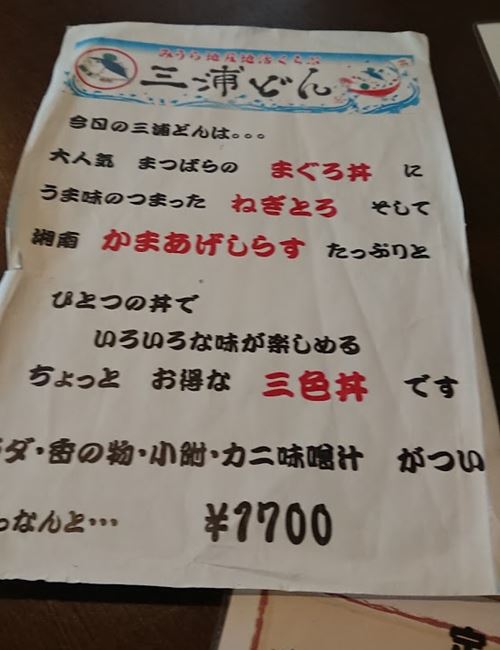 みうら地産地消くらぶ
三浦どん
今日の三浦どんは。。。
大人気 まつばらの まぐろ丼 に
うま味のつまった ねぎとろ そして
湘南 かまあげしらす たっぷりと
ひとつの丼で
いろいろな味が楽しめる
ちょっと お得な 三色丼 です
ダ・香の物・小鉢・カニ味噌汁 がつい
なんと… ¥1700
定